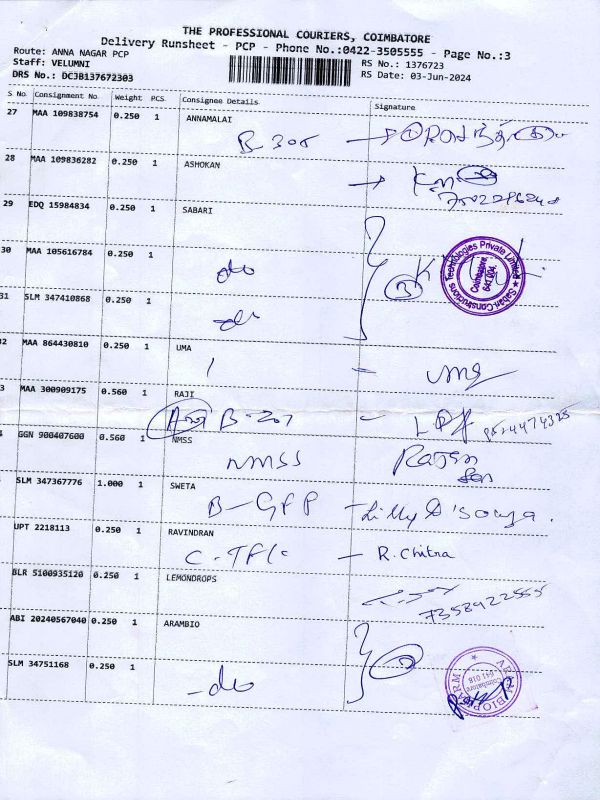 THE PROFESSIONAL COURIERS, COIMBATORE
Delivery Runsheet - PCP - Phone No.:0422-3505555 - Page No.:3
Route: ANNA NAGAR PCP
RS No.: 1376723
Staff: VELUMNI
RS Date: 03-Jun-2024
DRS No.: DCJB137672303
S No Consignment No. Weight PCS Consignee Details Signature
27 MAA 109838754 0.250 1 ANNAMALAI
B 305
28 MAA 109836282 0.250 1 ASHOKAN
29 EDQ 15984834 0.250 1 SABARI
30 MAA 105616784 0.250 1
do
3
Saban Constructions Technologies Private Limited
Coimbatore
641 004
31 SLM 347410868 0.250 1
do
32 MAA 864430810 0.250 1 UMA
uma
3 MAA 300909175 0.560 1 RAJI
B-207
9524474325
GGN 900407600 0.560 1 NMSS
NMSS
Rajen
SLM 347367776 1.000 1 SWETA
B-GFP - Lilly D'souza.
UPT 2218113 0.250 1 RAVINDRAN
C-TF1c - R. Chitra
BLR 5100935120 0.250 1 LEMONDROPS
7358922555
ABI 20240567040 0.250 1 ARAMBIO
2
ARAM BIOPHARM
Coimbatore
641 018
SLM 34751168 0.250 1
-do